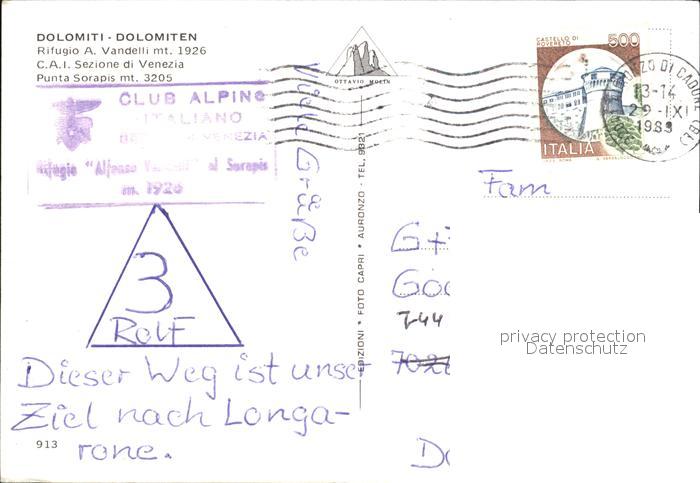 DOLOMITI - DOLOMITEN
Rifugio A. Vandelli mt. 1926
C.A.I. Sezione di Venezia
Punta Sorapis mt. 3205
CLUB ALPINO
ITALIANO
VENEZIA
Rifugio "Alfonso Vandelli" al Sorapis
m. 1926
3
Rolf
Dieser Weg ist unser
Ziel nach Longa-
rone.
913
Viele Grüße
OTTAVIO MOLIN
EDIZIONI * FOTO CAPRI * AURONZO - TEL. 9821
CASTELLO DI
ROVERETO
500
ITALIA
13-14
1989
Fam
privacy protection
Datenschutz